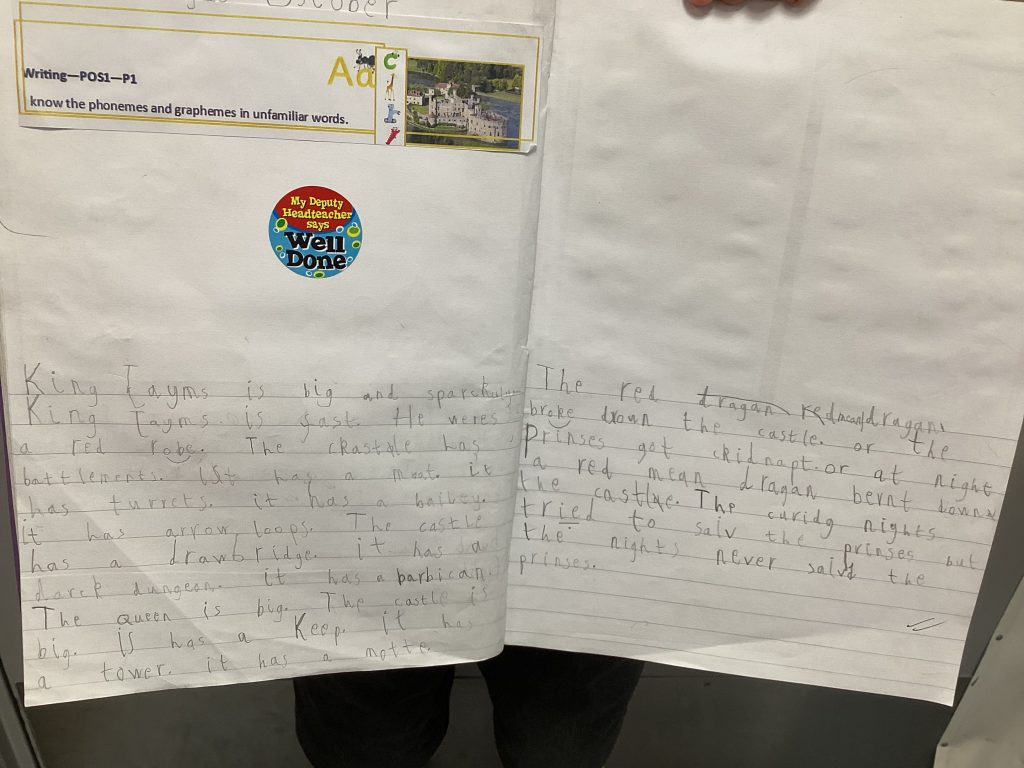 October
Writing—POS1—P1
Aa
know the phonemes and graphemes in unfamiliar words.
My Deputy
Headteacher
says
Well
Done
King Tayms is big and
King Tayms is fast. He weres
a red robe. The has
battlements. has a moat. it
has turrets. it has a bailey.
it has arrow loops. The castle
has a drawbridge. it has a
darck dungeon. it has a barbican.
The queen is big. The castle is
big. is has a Keep. it has
a tower. it has a motte.
The red dragan red mean dragan
broke down the castle. or the
Prinses got kidnapt. or at night
a red mean dragan bernt down
the castlye. The nights
tried to salv the prinses but
the nights never salvd the
prinses.